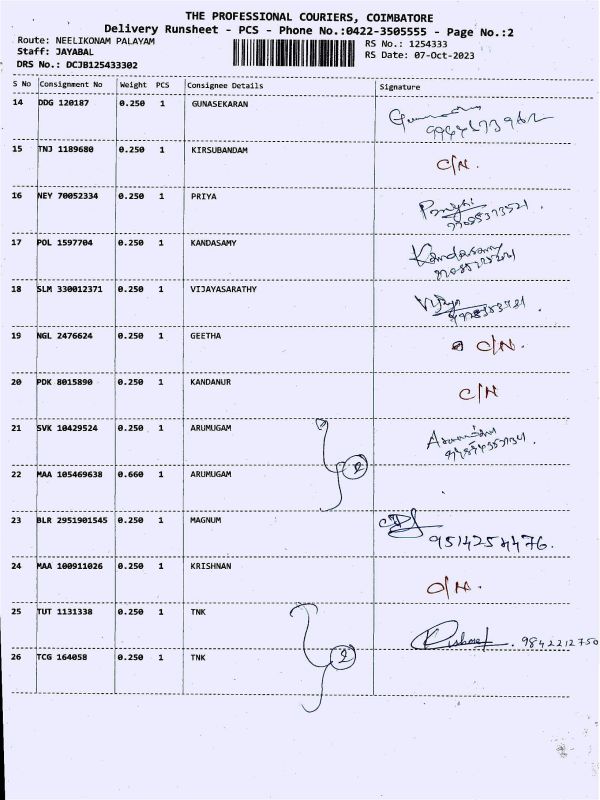 THE PROFESSIONAL COURIERS, COIMBATORE
Delivery Runsheet - PCS - Phone No.:0422-3505555 - Page No.:2
Route: NEELIKONAM PALAYAM
RS No.: 1254333
Staff: JAYABAL
RS Date: 07-Oct-2023
DRS No.: DCJB125433302
S No Consignment No Weight PCS Consignee Details Signature
14 DDG 120187 0.250 1 GUNASEKARAN
15 TNJ 1189680 0.250 1 KIRSUBANDAM C/N.
16 NEY 70052334 0.250 1 PRIYA
17 POL 1597704 0.250 1 KANDASAMY Kandasamy
18 SLM 330012371 0.250 1 VIJAYASARATHY
19 NGL 2476624 0.250 1 GEETHA C/N.
20 PDK 8015890 0.250 1 KANDANUR C/N
21 SVK 10429524 0.250 1 ARUMUGAM
2
22 MAA 105469638 0.660 1 ARUMUGAM
23 BLR 2951901545 0.250 1 MAGNUM
9514254476.
24 MAA 100911026 0.250 1 KRISHNAN
25 TUT 1131338 0.250 1 TNK
9842212750
2
26 TCG 164058 0.250 1 TNK